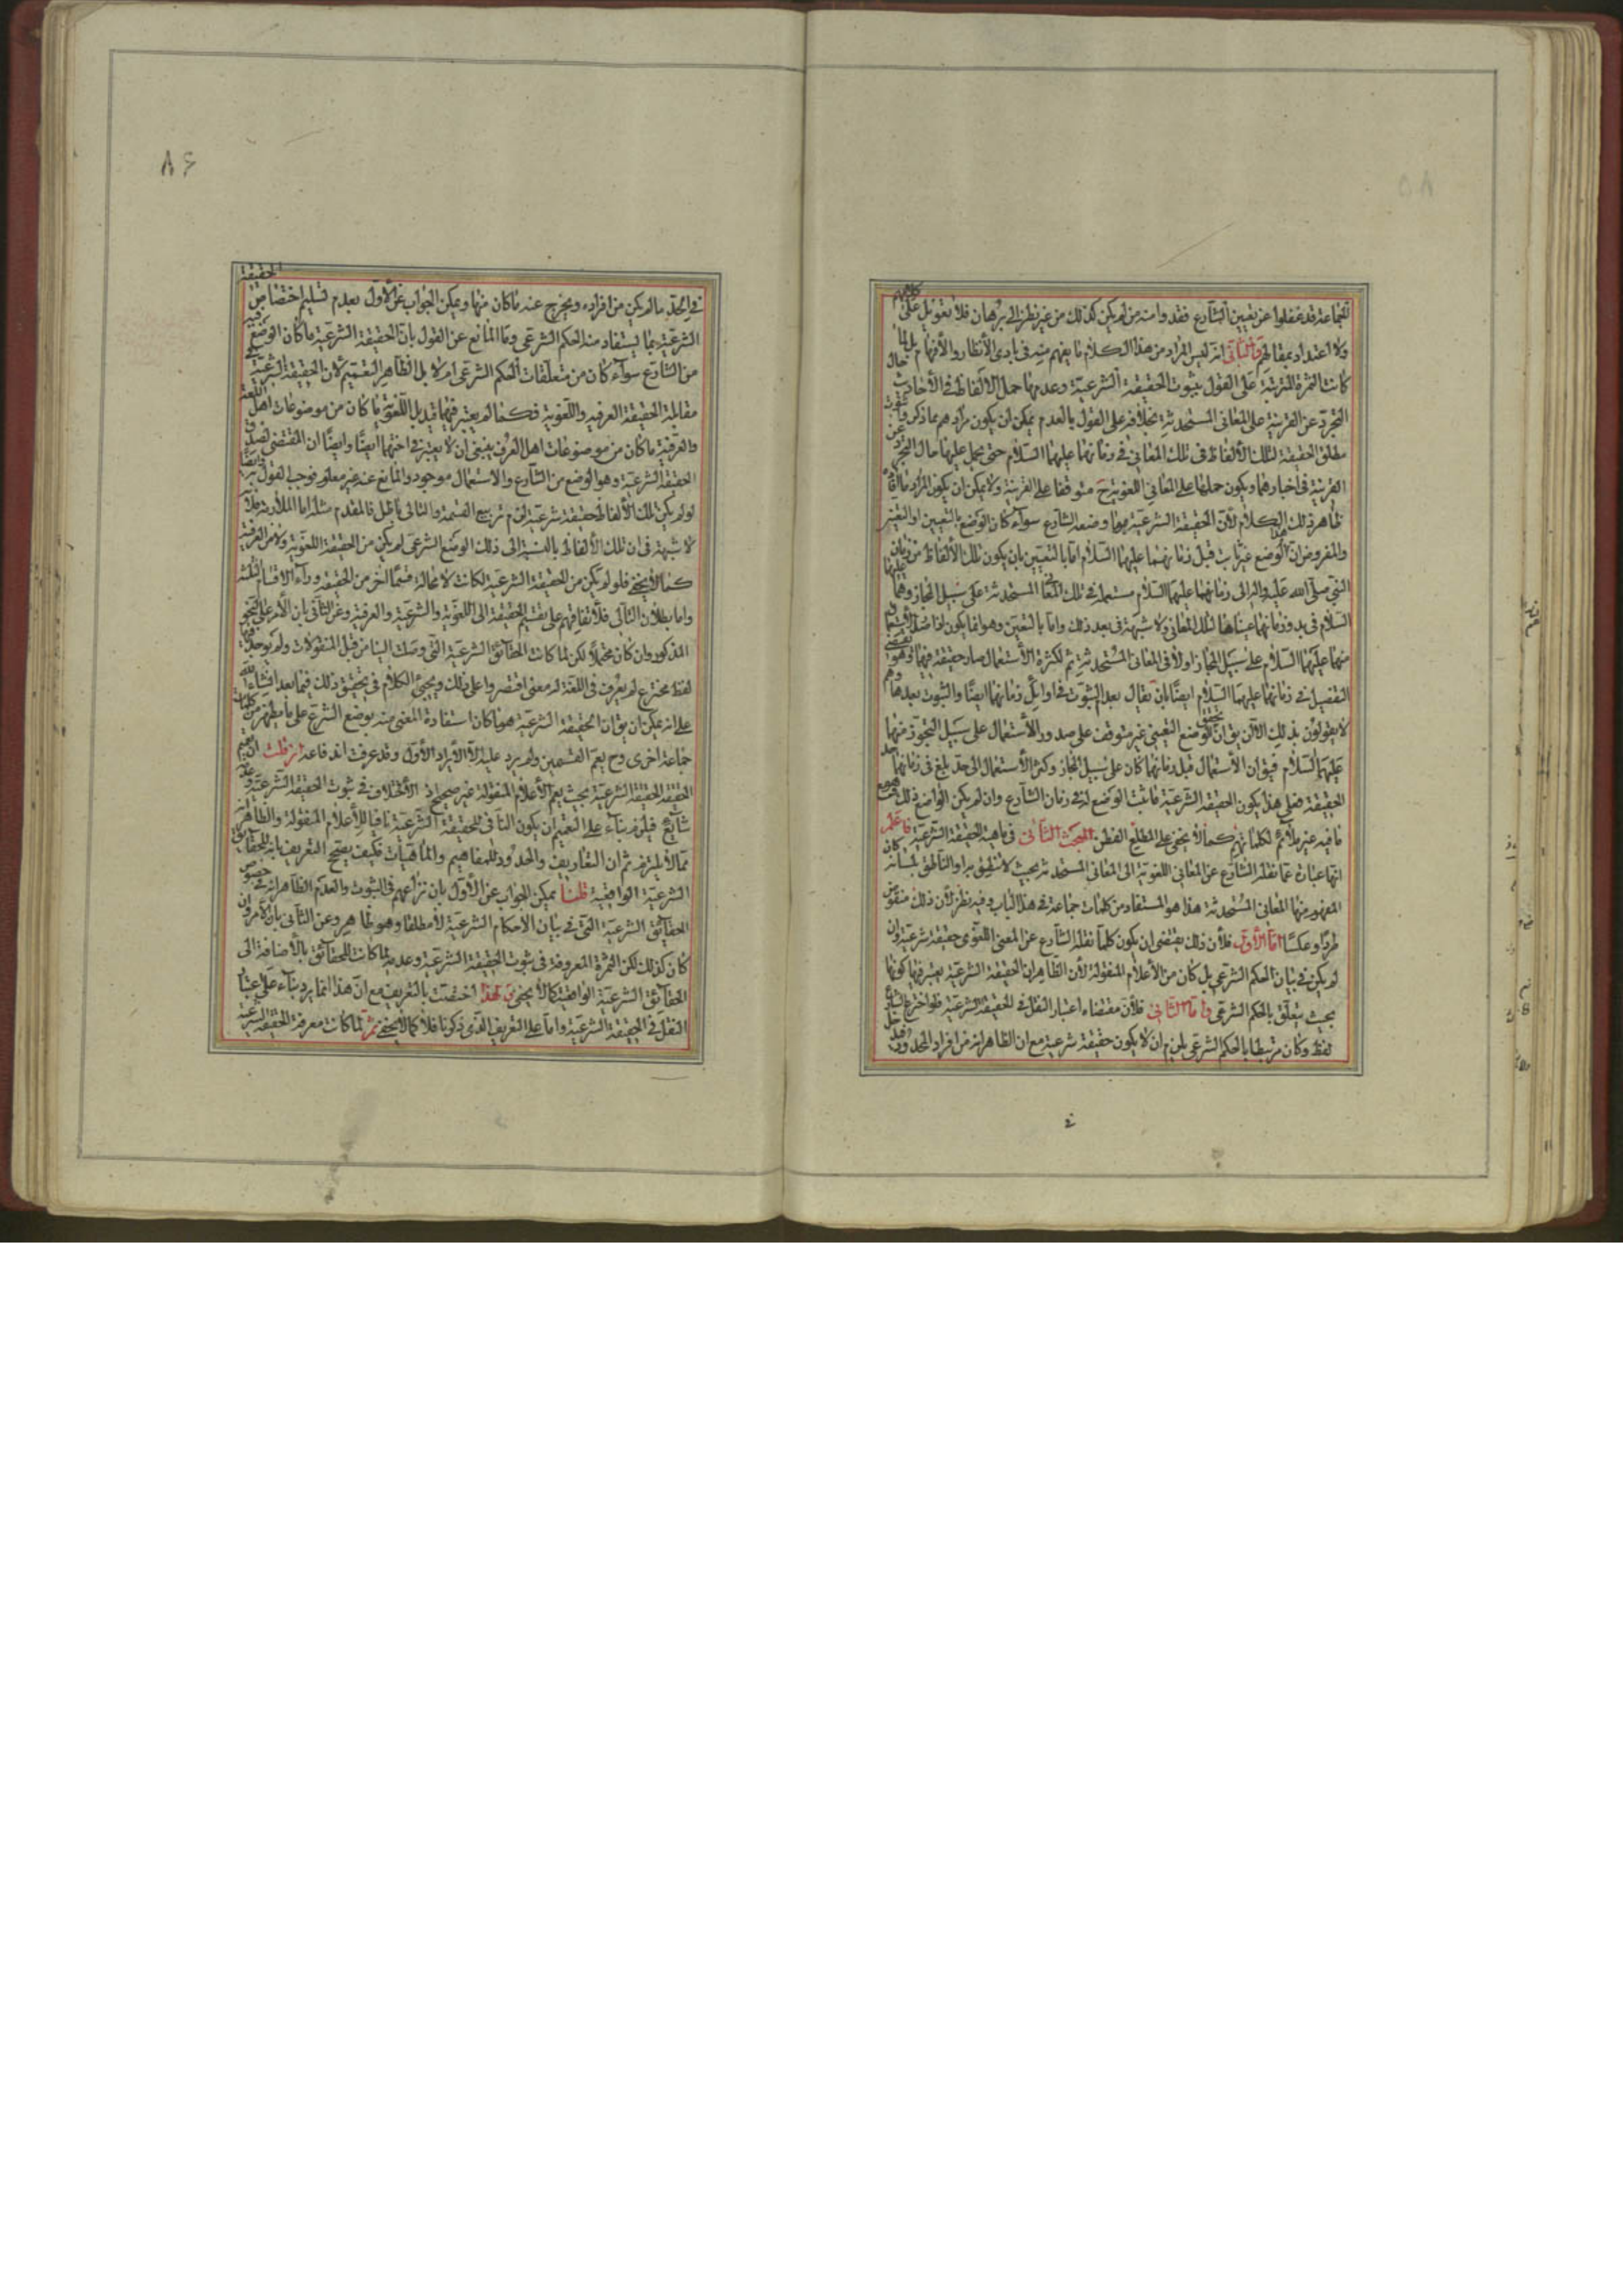 لجماعة قد غفلوا عن تعيين الشارع فقد وامنه من لم يكن كذلك من غير نظر الى برهان فلا تعويل على كلامهم
ولا اعتداد بمقالهم والثانى انه ليس المراد من هذا الكلام ما يفهم منه فى بادى الأنظار والأفهام بل لما
كانت الثمرة المترتبة على القول بثبوت الحقيقة الشرعية وعدمها حمل الالفاظ فى الأحاديث حال
التجرد عن القرينة على المعانى المستحدثة بخلافه على القول بالعدم يمكن ان يكون مرادهم بما ذكروا ثبوت
مطلق الحقيقة لتلك الألفاظ فى تلك المعانى فى زمانهما عليهما السلام حتى يحمل عليها حال التجرد عن
القرينة فى اخبارهما ويكون حملها على المعانى اللغوية ح متوقفا على القرينة ولا يمكن ان يكون المراد ما
ظاهر ذلك الكلام لأن الحقيقة الشرعية ما وضعه الشارع سواء كان الوضع بالتعيين او التعين
والمفروض ان هذا الوضع غير ثابت قبل زمانهما عليهما السلام اما بالتعيين بان يكون تلك الألفاظ من زمان
النبى صلى الله عليه واله الى زمانهما عليهما السلام مستعملة فى تلك المعانى المستحدثة على سبيل المجاز وهما عليهما
السلام فى بدو زمانهما عيناها لتلك المعانى ولا شبهة فى بعد ذلك واما بالتعين وهو انما يكون اذا صدر الأستعمال
منهما عليهما السلام على سبيل المجاز اولا فى المعانى المستحدثة ثم لكثرة الأستعمال صار حقيقة فيها وهو يقتضى
التفصيل فى زمانهما عليهما السلام ايضا بان يقال بعدم الثبوت فى اوائل زمانهما ايضا والثبوت بعدها وهم
لا يقولون بذلك الا ان يق ان تحقق الوضع التعينى غير متوقف على صدور الأستعمال على سبيل التجوز منهما
عليهما السلام فيق ان الأستعمال قبل زمانهما كان على سبيل المجاز وكثر الأستعمال الى حد بلغ فى زمانهما حد
الحقيقة فعلى هذا يكون الحقيقة الشرعية ما ثبت الوضع له فى زمان الشارع وان لم يكن الواضع ذلك
ما فيه غير ملائم لكلماتهم كما لا يخفى على المطلع الفطن المبحث الثانى فى ماهية الحقيقة الشرعية فاعلم
انها عبارة عما نقله الشارع عن المعانى اللغوية الى المعانى المستحدثة بحيث لا نطيق مراد الناطق بلسانه كان
المفهوم منها المعانى المستحدثة هذا هو المستفاد من كلمات جماعة فى هذا الباب وفيه نظر لأن ذلك منقوض
طردا وعكسا اما الأول فلأن ذلك يقتضى ان يكون كلما نقله الشارع عن المعنى اللغوى حقيقة شرعية وان
لم يكن فى بيان الحكم الشرعى بل كان من الأعلام المنقولة لأن الظاهر ان الحقيقة الشرعية يعتبر فيها كونها
بحيث يتعلق بالحكم الشرعى واما الثانى فلأن مقتضاه اعتبار النقل فى الحقيقة الشرعية فلو اخترع الشارع
لفظ وكان مرتبطا بالحكم الشرعى يلزم ان لا يكون حقيقة شرعية مع ان الظاهر انه من افراد المحدود وقد دخل
فى الحد ما لم يكن من افراده ويخرج عنه ما كان منها ويمكن الجواب عن الأول بعدم تسليم اختصاص الحقيقة
الشرعية بما يستفاد منه الحكم الشرعى وما المانع عن القول بان الحقيقة الشرعية ما كان الوضع فيه
من الشارع سواء كان من متعلقات الحكم الشرعى ام لا بل الظاهر التعميم لان الحقيقة الشرعية فى
مقابلة الحقيقة العرفيه واللغوية فكما لم يعتبر فيهما تبديل اللغوى ما كان من موضوعات اهل اللغة
والعرفية ما كان من موضوعات اهل العرف ينبغى ان لا يعتبر فى اختهما ايضا وايضا ان المقتضى لصدق
الحقيقة الشرعية وهو الوضع من الشارع والاستعمال موجود والمانع عنه غير معلوم فوجب القول به وايضا
لو لم يكن تلك الألفاظ حقيقة شرعية لزم تربيع القسمة والتالى باطل فالمقدم مثله اما الملازمة فلأنه
لا شبهة فى ان تلك الألفاظ بالنسبة الى ذلك الوضع الشرعى لم يكن من الحقيقة اللغوية ولا من العرفية
كما لا يخفى فلو لم يكن من الحقيقة الشرعية لكانت لا محالة قسما اخر من الحقيقة وراء الاقسام الثلثة
واما بطلان التالى فلأتفاقهم على تقسيم الحقيقة الى اللغوية والشرعية والعرفية وعن الثانى بان الأمر على النحو
المذكور وان كان محتملا لكن لما كانت الحقائق الشرعية التى وصلت الينا من قبيل المنقولات ولم يوجد فيها
لفظ مخترع لم يعرف فى اللغة له معنى اقتصروا على ذلك ويجئ الكلام فى تحقيق ذلك فيما بعد انشاء الله
على انه يمكن ان يق ان الحقيقة الشرعية هو ما كان استفادة المعنى منه بوضع الشرع على ما يظهر من كلمات
جماعة اخرى وح يعم القسمين ولم يرد عليه الا الأيراد الأول وقد عرفت اندفاعه ان قلت ان تعميم
الحقيقة الحقيقة الشرعية بحيث يعم الأعلام المنقولة غير صحيح اذ الأختلاف فى ثبوت الحقيقة الشرعية وعدمه
شائع فيلزم بناء على التعميم ان يكون النافى للحقيقة الشرعية نافيا للأعلام المنقولة والظاهر
مما لا يلتزمه ثم ان التعاريف والحدود للمفاهيم والماهيات فكيف يصح التعريف بانه للحقايق
الشرعية الواقعية قلنا يمكن الجواب عن الأول بان نزاعهم فى الثبوت والعدم الظاهر انه فى خصوص
الحقائق الشرعية التى فى بيان الاحكام الشرعية لا مطلقا وهو ظاهر وعن الثانى بان الأمر وان
كان كذلك لكن الثمرة المعروفة فى ثبوت الحقيقة الشرعية وعدمه لما كانت للحقائق بالأضافة الى
الحقائق الشرعية الواقعية كما لا يخفى ولهذا اختصت بالتعريف مع ان هذا انما يرد بناء على اعتبار
النقل فى الحقيقة الشرعية واما على التعريف الذى ذكرنا فلا كما لا يخفى ثم لما كانت معرفة الحقيقة الشرعية